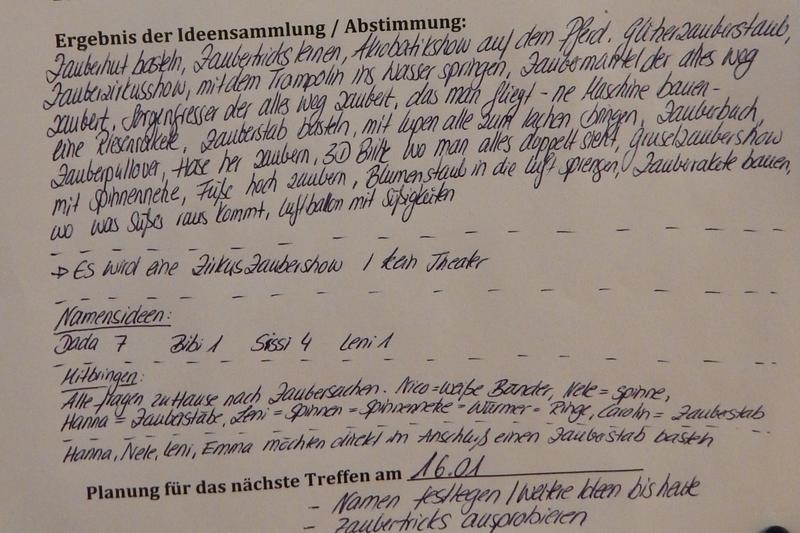 Ergebnis der Ideensammlung / Abstimmung:
Zauberhut basteln, Zaubertricks lernen, Akrobatikshow auf dem Pferd, Glitzerzauberstaub,
Zauberzirkusshow, mit dem Trampolin ins Wasser springen, Zaubermantel der alles weg
zaubert, Sorgenfresser der alles weg zaubert, das man fliegt - ne Maschine bauen -
eine Riesenrakete, Zauberstab basteln, mit lupen alle zum lachen bringen, Zauberbuch,
Zauberpullover, Hase her zaubern, 3D Brille wo man alles doppelt sieht, Gruselzaubershow
mit Spinnennetze, Füße hoch zaubern, Blumenstaub in die luft sprengen, Zauberrakete bauen,
wo was Süßes raus kommt, luftballon mit Süßigkeiten
→ Es wird eine Zirkus Zaubershow / kein Theater
Namensideen:
Dada 7 Bibi 1 Sissi 4 Leni 1
Mitbringen:
Alle fragen zu Hause nach Zaubersachen. Nico = weiße Bänder, Nele = Spinne,
Hanna = Zauberstäbe, Leni = Spinnen = Spinnennetze = Würmer = Ringe, Carolin = Zauberstab
Hanna, Nele, Leni, Emma möchten direkt im Anschluß einen Zauberstab basteln
Planung für das nächste Treffen am 16.01
- Namen festlegen / weitere Ideen bis heute
- Zaubertricks ausprobieren